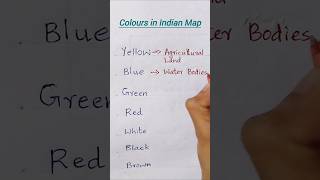 Colours in Indian Map
Yellow → Agricultural
Land
Blue → Water Bodies
Green
Red
White
Black
Brown
Blue
Water Bodies
Green
Red